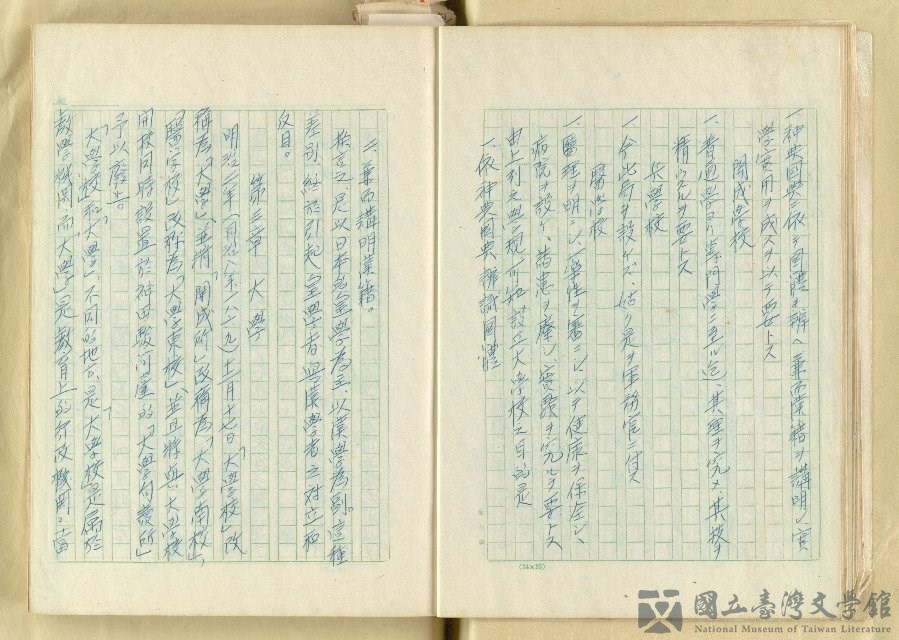 一、神典國典ニ依テ國體ヲ辨ヘ兼而漢籍ヲ講明シ実
学実用ヲ成スヲ以テ要トス
開成學校
一、普通學ヨリ專門學ニ至ル迄、其理ヲ究メ、其技ヲ
精シクルヲ要トス
兵學校
一、今此局ヲ設ケズ、姑ク是ヲ軍務官ニ付ス
醫學校
一、醫理ヲ明ニシ、薬性ヲ審ニシ、以テ健康ヲ保全シ、
病院ヲ設ケ、諸患ヲ療シ、実驗ヲ究ルヲ要トス
由上列之學規可知設立大學校之目的是
一、依神典國典辨識國體
二、兼而講明漢籍。
換言之、是以日本的皇學為主、以漢學為副。這種
差別終於引起皇學者與漢學者之对立和
反目。
第三章 大學
明治二年(一八六九)十二月十七日、「大學校」改
稱為「大學」、並將「開成所」改稱為「大學南校」、
「醫学校」改称為「大學東校」、並且將與大學校
開校同時設置於神田駿河臺的「大學句讀所」
予以廢止。
「大學校」和「大學」不同的地方、是「大學校」是屬於
教學機関而「大學」是教育上的行政機関之当
(24x25)
國立臺灣文學館
National Museum of Taiwan Literature